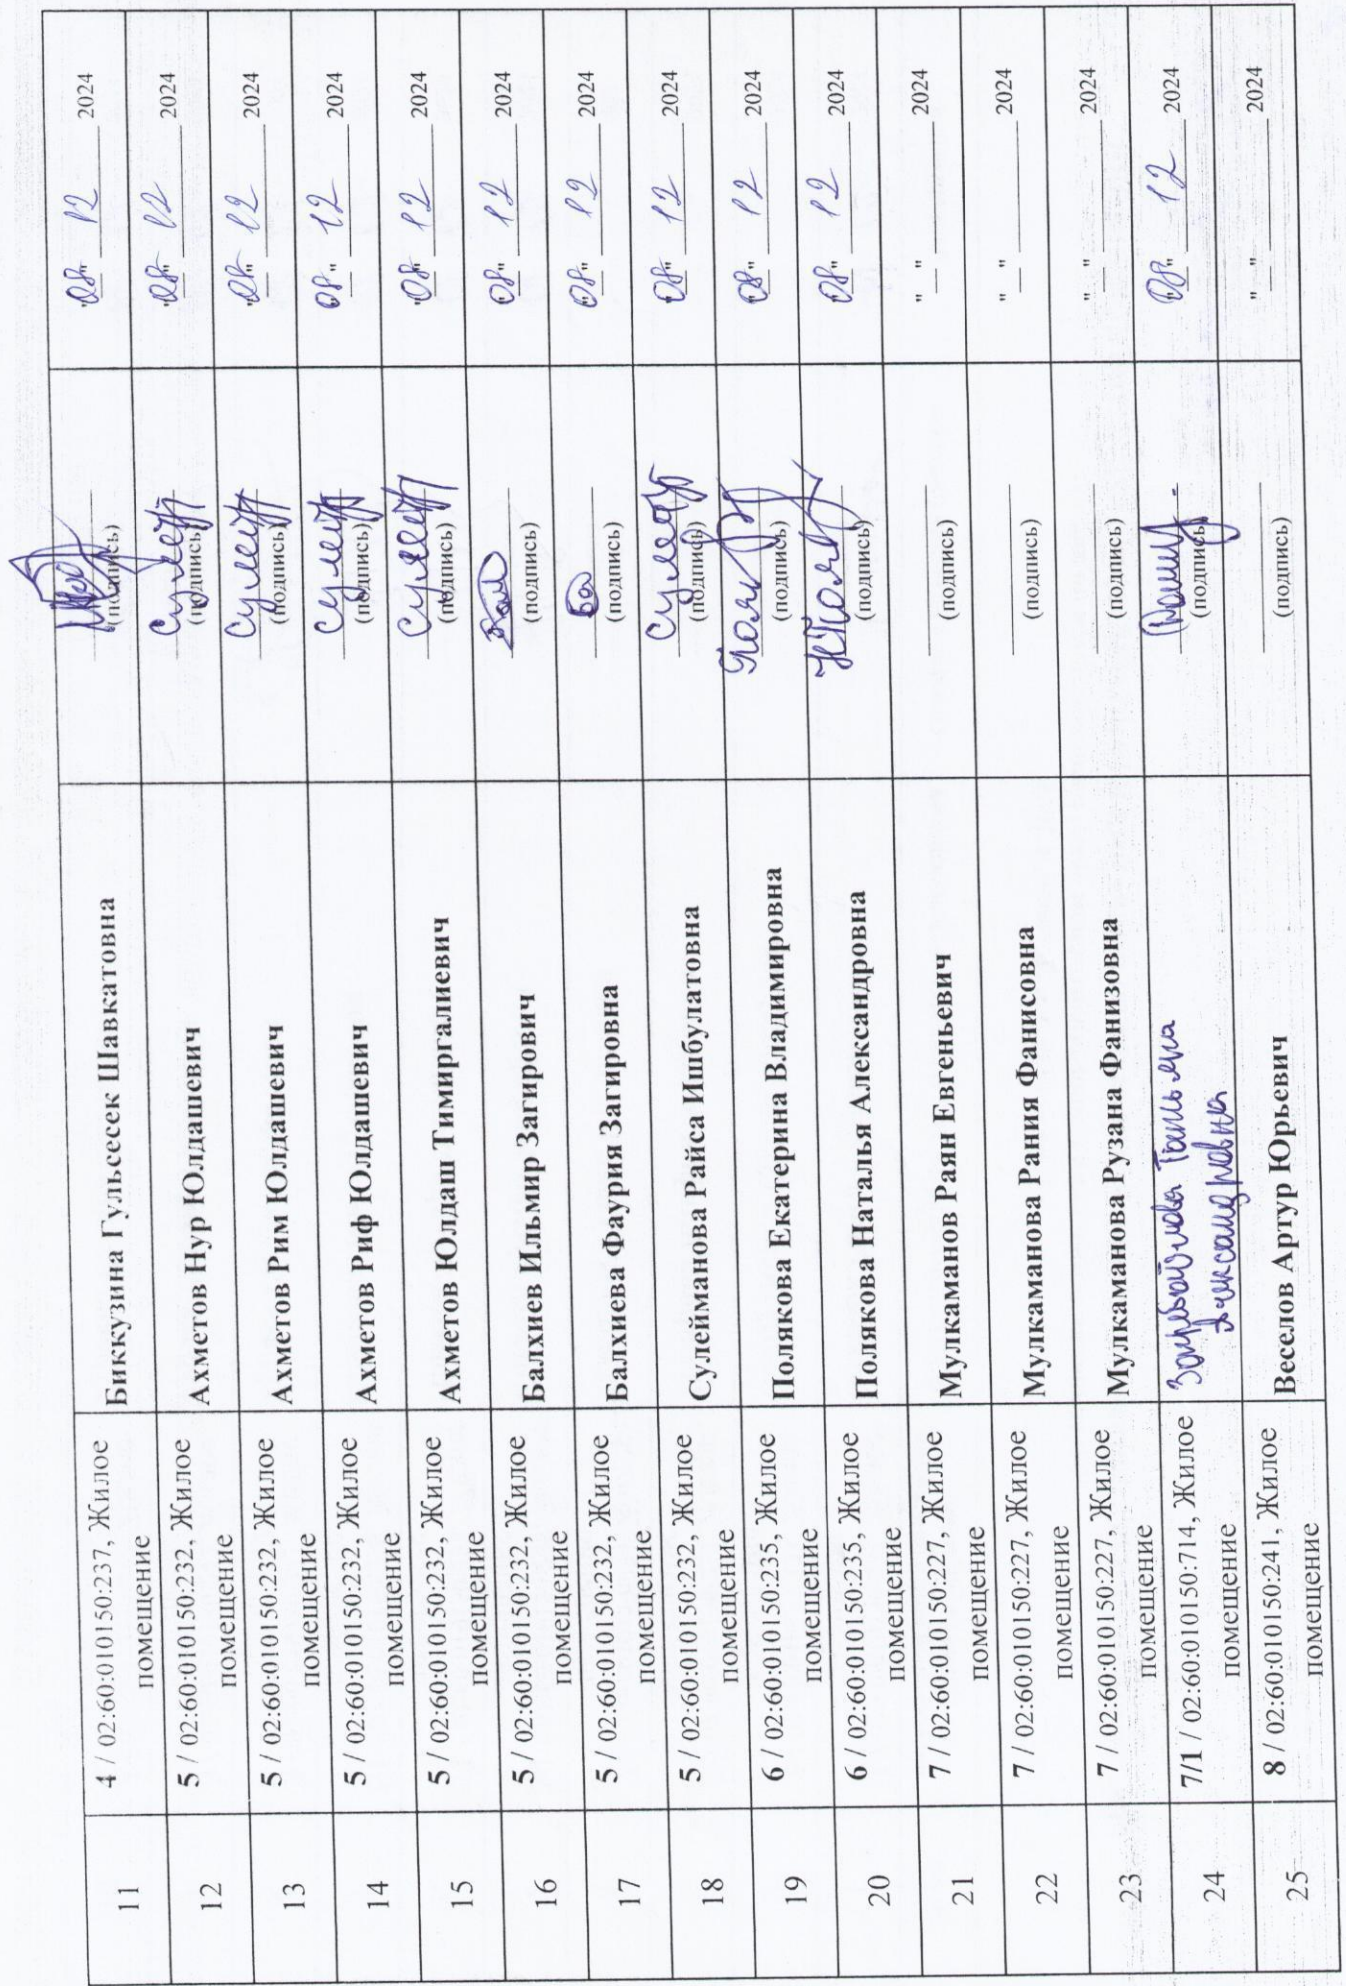 11 4 / 02:60:010150:237, Жилое помещение Биккузина Гульсесек Шавкатовна (подпись) "08" 12 2024
12 5 / 02:60:010150:232, Жилое помещение Ахметов Нур Юлдашевич Сулей (подпись) "08" 12 2024
13 5 / 02:60:010150:232, Жилое помещение Ахметов Рим Юлдашевич Сулей (подпись) "08" 12 2024
14 5 / 02:60:010150:232, Жилое помещение Ахметов Риф Юлдашевич Сулей (подпись) "08" 12 2024
15 5 / 02:60:010150:232, Жилое помещение Ахметов Юлдаш Тимиргалиевич Сулей (подпись) "08" 12 2024
16 5 / 02:60:010150:232, Жилое помещение Балхиев Ильмир Загирович (подпись) "08" 12 2024
17 5 / 02:60:010150:232, Жилое помещение Балхиева Фаурия Загировна Ба (подпись) "08" 12 2024
18 5 / 02:60:010150:232, Жилое помещение Сулейманова Райса Ишбулатовна Сулей (подпись) "08" 12 2024
19 6 / 02:60:010150:235, Жилое помещение Полякова Екатерина Владимировна Поляк (подпись) "08" 12 2024
20 6 / 02:60:010150:235, Жилое помещение Полякова Наталья Александровна НПоляк (подпись) "08" 12 2024
21 7 / 02:60:010150:227, Жилое помещение Мулкаманов Раян Евгеньевич (подпись) "__" 2024
22 7 / 02:60:010150:227, Жилое помещение Мулкаманова Рания Фанисовна (подпись) "__" 2024
23 7 / 02:60:010150:227, Жилое помещение Мулкаманова Рузана Фанизовна (подпись) "__" 2024
24 7/1 / 02:60:010150:714, Жилое помещение Татьяна Александровна (подпись) "08" 12 2024
25 8 / 02:60:010150:241, Жилое помещение Веселов Артур Юрьевич (подпись) "__" 2024